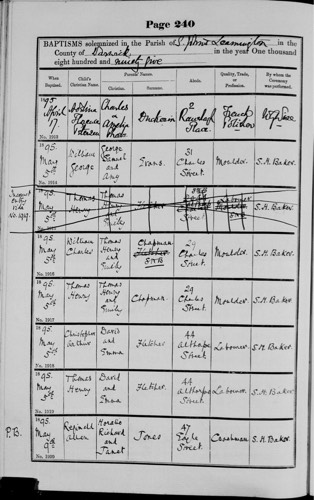 Page 240
BAPTISMS solemnized in the Parish of S. John's Leamington in the
County of Warwick in the year One thousand
eight hundred and ninety five
When Baptized.
Child's Christian Name.
Parents' Names.
Christian.
Surname.
Abode.
Quality, Trade, or Profession.
By whom the Ceremony was performed.
1895.
April
17
No. 1913
Florence
Charles
and
2
Place
French
1895.
May
5th
No. 1914
William
George
George
Samuel
and
Amy
Evans.
31
Charles
Street.
Moulder.
S.H. Baker.
Incorrect
Entry
Vide
No. 1917.
1895.
May
5th
Thomas
Henry
Thomas
Henry
and
Emily
Fletcher
Street
Moulder
1895.
May
5th
No. 1916
William
Charles
Thomas
Henry
and
Emily
Chapman
Fletcher
S.H.B.
29
Charles
Street.
Moulder.
S.H. Baker.
1895.
May
5th
No. 1917
Thomas
Henry
Thomas
Henry
and
Emily
Chapman.
29
Charles
Street.
Moulder.
S.H. Baker.
1895.
May
5th
No. 1918
Christopher
Arthur
David
and
Emma
Fletcher
44
Althorpe
Street.
Labourer.
S.H. Baker.
1895.
May
5th
No. 1919
Thomas
Henry
David
and
Emma
Fletcher.
44
Althorpe
Street.
Labourer.
S.H. Baker.
P.B.
1895.
May
9th
No. 1920
Reginald
Allen
Horatio
Richard
and
Janet
Jones
47
Street.
Coachman.
S.H. Baker.